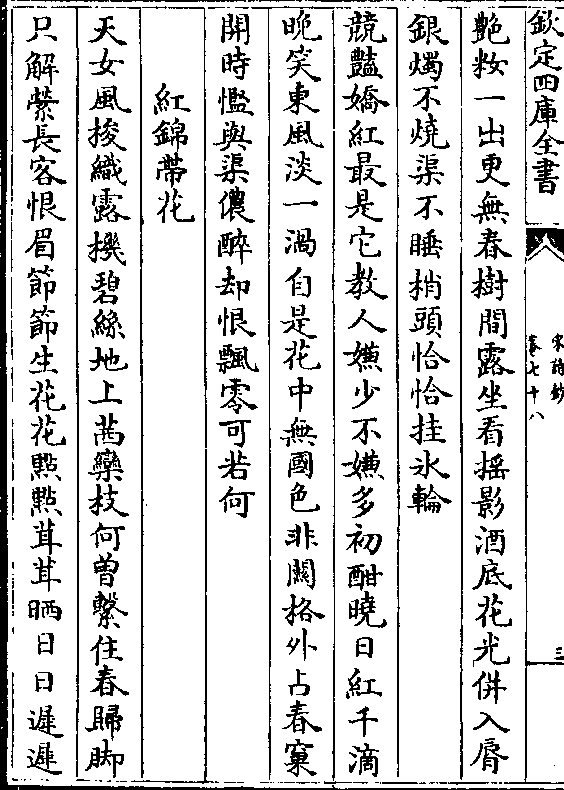 欽定四庫全書
宋詩鈔
卷七十八
三
艷粧一出更無春樹間露坐看摇影酒底花光倂入脣
銀燭不燒渠不睡梢頭恰恰挂氷輪
競豔嬌紅最是它教人嫌少不嫌多初酣曉日紅千滴
晚笑東風淡一渦自是花中無國色非闗格外占春窠
開時慍與渠儂醉却恨飄零可若何
紅錦帶花
天女風梭織露機碧絲地上茜欒枝何曾繫住春歸脚
只解縈長客恨眉節節生花花點點茸茸晒日日遲遲